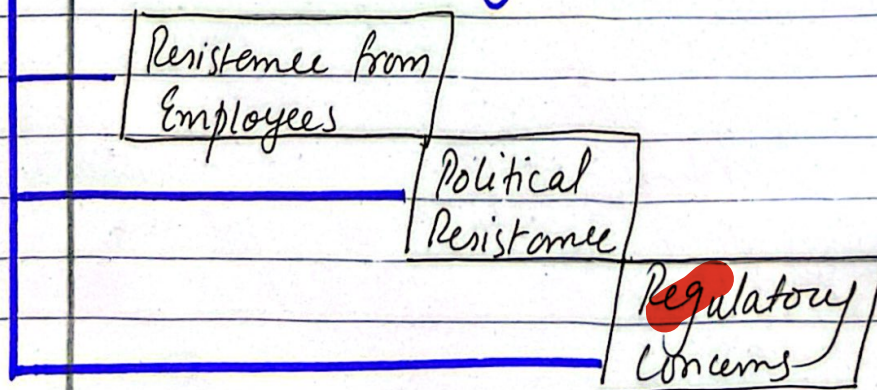 Resistance from
Employees
Political
Resistance
Regulatory
Concerns